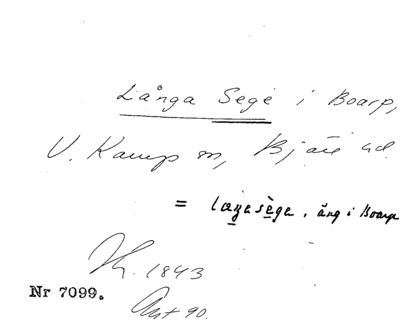 Långa Sege i Boarp,
V. Karup sn, Bjäre hd.
= laŋasèga, äng i Boarp
1843
Nr 7099.
90.